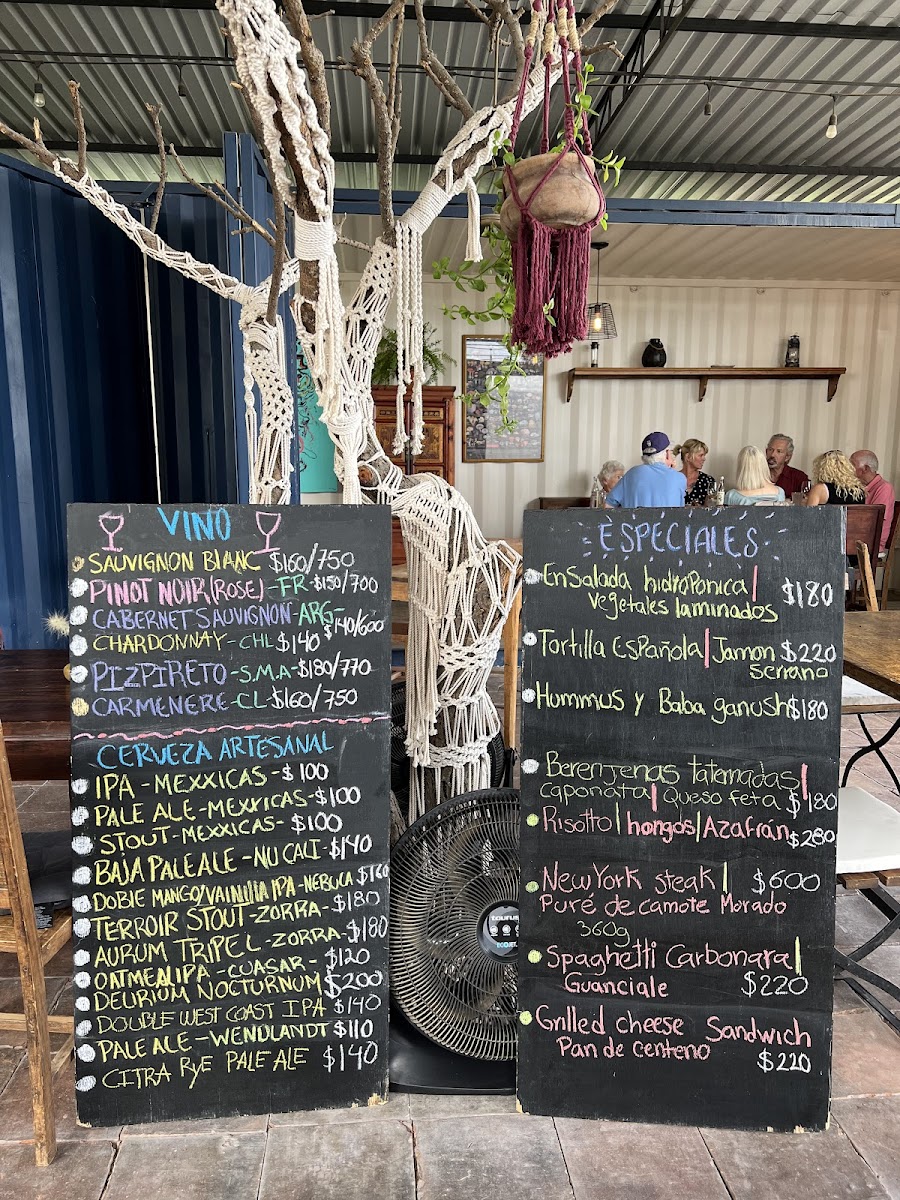 VINO
SAUVIGNON BLANC $160/750
PINOT NOIR (ROSE) - FR - $150/700
CABERNET SAUVIGNON - ARG - $140/600
CHARDONNAY - CHL $140
PIZPIRETO - S.M.A - $180/770
CARMENERE - CL - $160/750
CERVEZA ARTESANAL
IPA - MEXXICAS - $100
PALE ALE - MEXXICAS - $100
STOUT - MEXXICAS - $100
BAJA PALE ALE - NU CALI - $140
DOBLE MANGO/VAINILLA IPA - NEBULA $160
TERROIR STOUT - ZORRA - $180
AURUM TRIPEL - ZORRA - $180
OATMEAL IPA - CUASAR - $120
DELIRIUM NOCTURNUM $200
DOUBLE WEST COAST IPA $140
PALE ALE - WENDLANDT $110
CITRA RYE PALE ALE $140
ESPECIALES
Ensalada hidroponica | $180
vegetales laminados
Tortilla Española | Jamon $220
serrano
Hummus y Baba ganush $180
Berenjenas tatemadas |
caponata | Queso feta $180
Risotto | hongos | Azafrán $280
New York steak | $600
Puré de camote Morado
360g
Spaghetti Carbonara |
Guanciale $220
Grilled cheese Sandwich
Pan de centeno $220
taurus